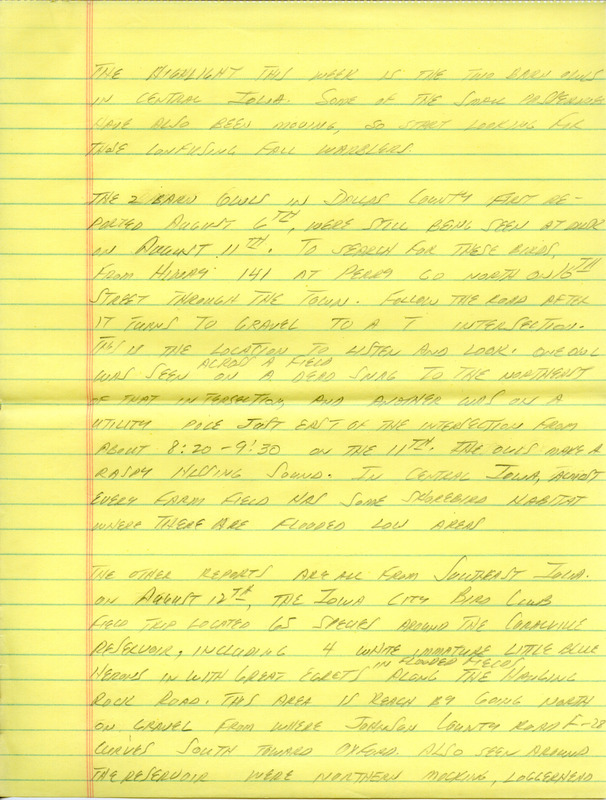 THE HIGHLIGHT THIS WEEK IS THE TWO BARN OWLS
IN CENTRAL IOWA. SOME OF THE SMALL PASSERINES
HAVE ALSO BEEN MOVING, SO START LOOKING FOR
THOSE CONFUSING FALL WARBLERS.
THE 2 BARN OWLS IN DALLAS COUNTY FIRST RE-
PORTED AUGUST 6TH, WERE STILL BEING SEEN AT DUSK
ON AUGUST 11TH. TO SEARCH FOR THESE BIRDS,
FROM HIWAY 141 AT PERRY GO NORTH ON 16TH
STREET THROUGH THE TOWN. FOLLOW THE ROAD AFTER
IT TURNS TO GRAVEL TO A T INTERSECTION.
THIS IS THE LOCATION TO LISTEN AND LOOK. ONE OWL
ACROSS A FIELD
WAS SEEN ON A DEAD SNAG TO THE NORTHEAST
OF THAT INTERSECTION, AND ANOTHER WAS ON A
UTILITY POLE JUST EAST OF THE INTERSECTION FROM
ABOUT 8:20-9:30 ON THE 11TH. THE OWLS MAKE A
RASPY HISSING SOUND. IN CENTRAL IOWA, ALMOST
EVERY FARM FIELD HAS SOME SHOREBIRD HABITAT
WHERE THERE ARE FLOODED LOW AREAS
THE OTHER REPORTS ARE ALL FROM SOUTHEAST IOWA.
ON AUGUST 12TH, THE IOWA CITY BIRD CLUB
FIELD TRIP LOCATED 65 SPECIES AROUND THE CORALVILLE
RESERVOIR, INCLUDING 4 WHITE IMMATURE LITTLE BLUE
IN FLOODED FIELDS
HERONS IN WITH GREAT EGRETS ALONG THE HANGING
ROCK ROAD. THIS AREA IS REACH BY GOING NORTH
ON GRAVEL FROM WHERE JOHNSON COUNTY ROAD F-28
CURVES SOUTH TOWARD OXFORD. ALSO SEEN AROUND
THE RESERVOIR WERE NORTHERN MOCKING, LOGGERHEAD